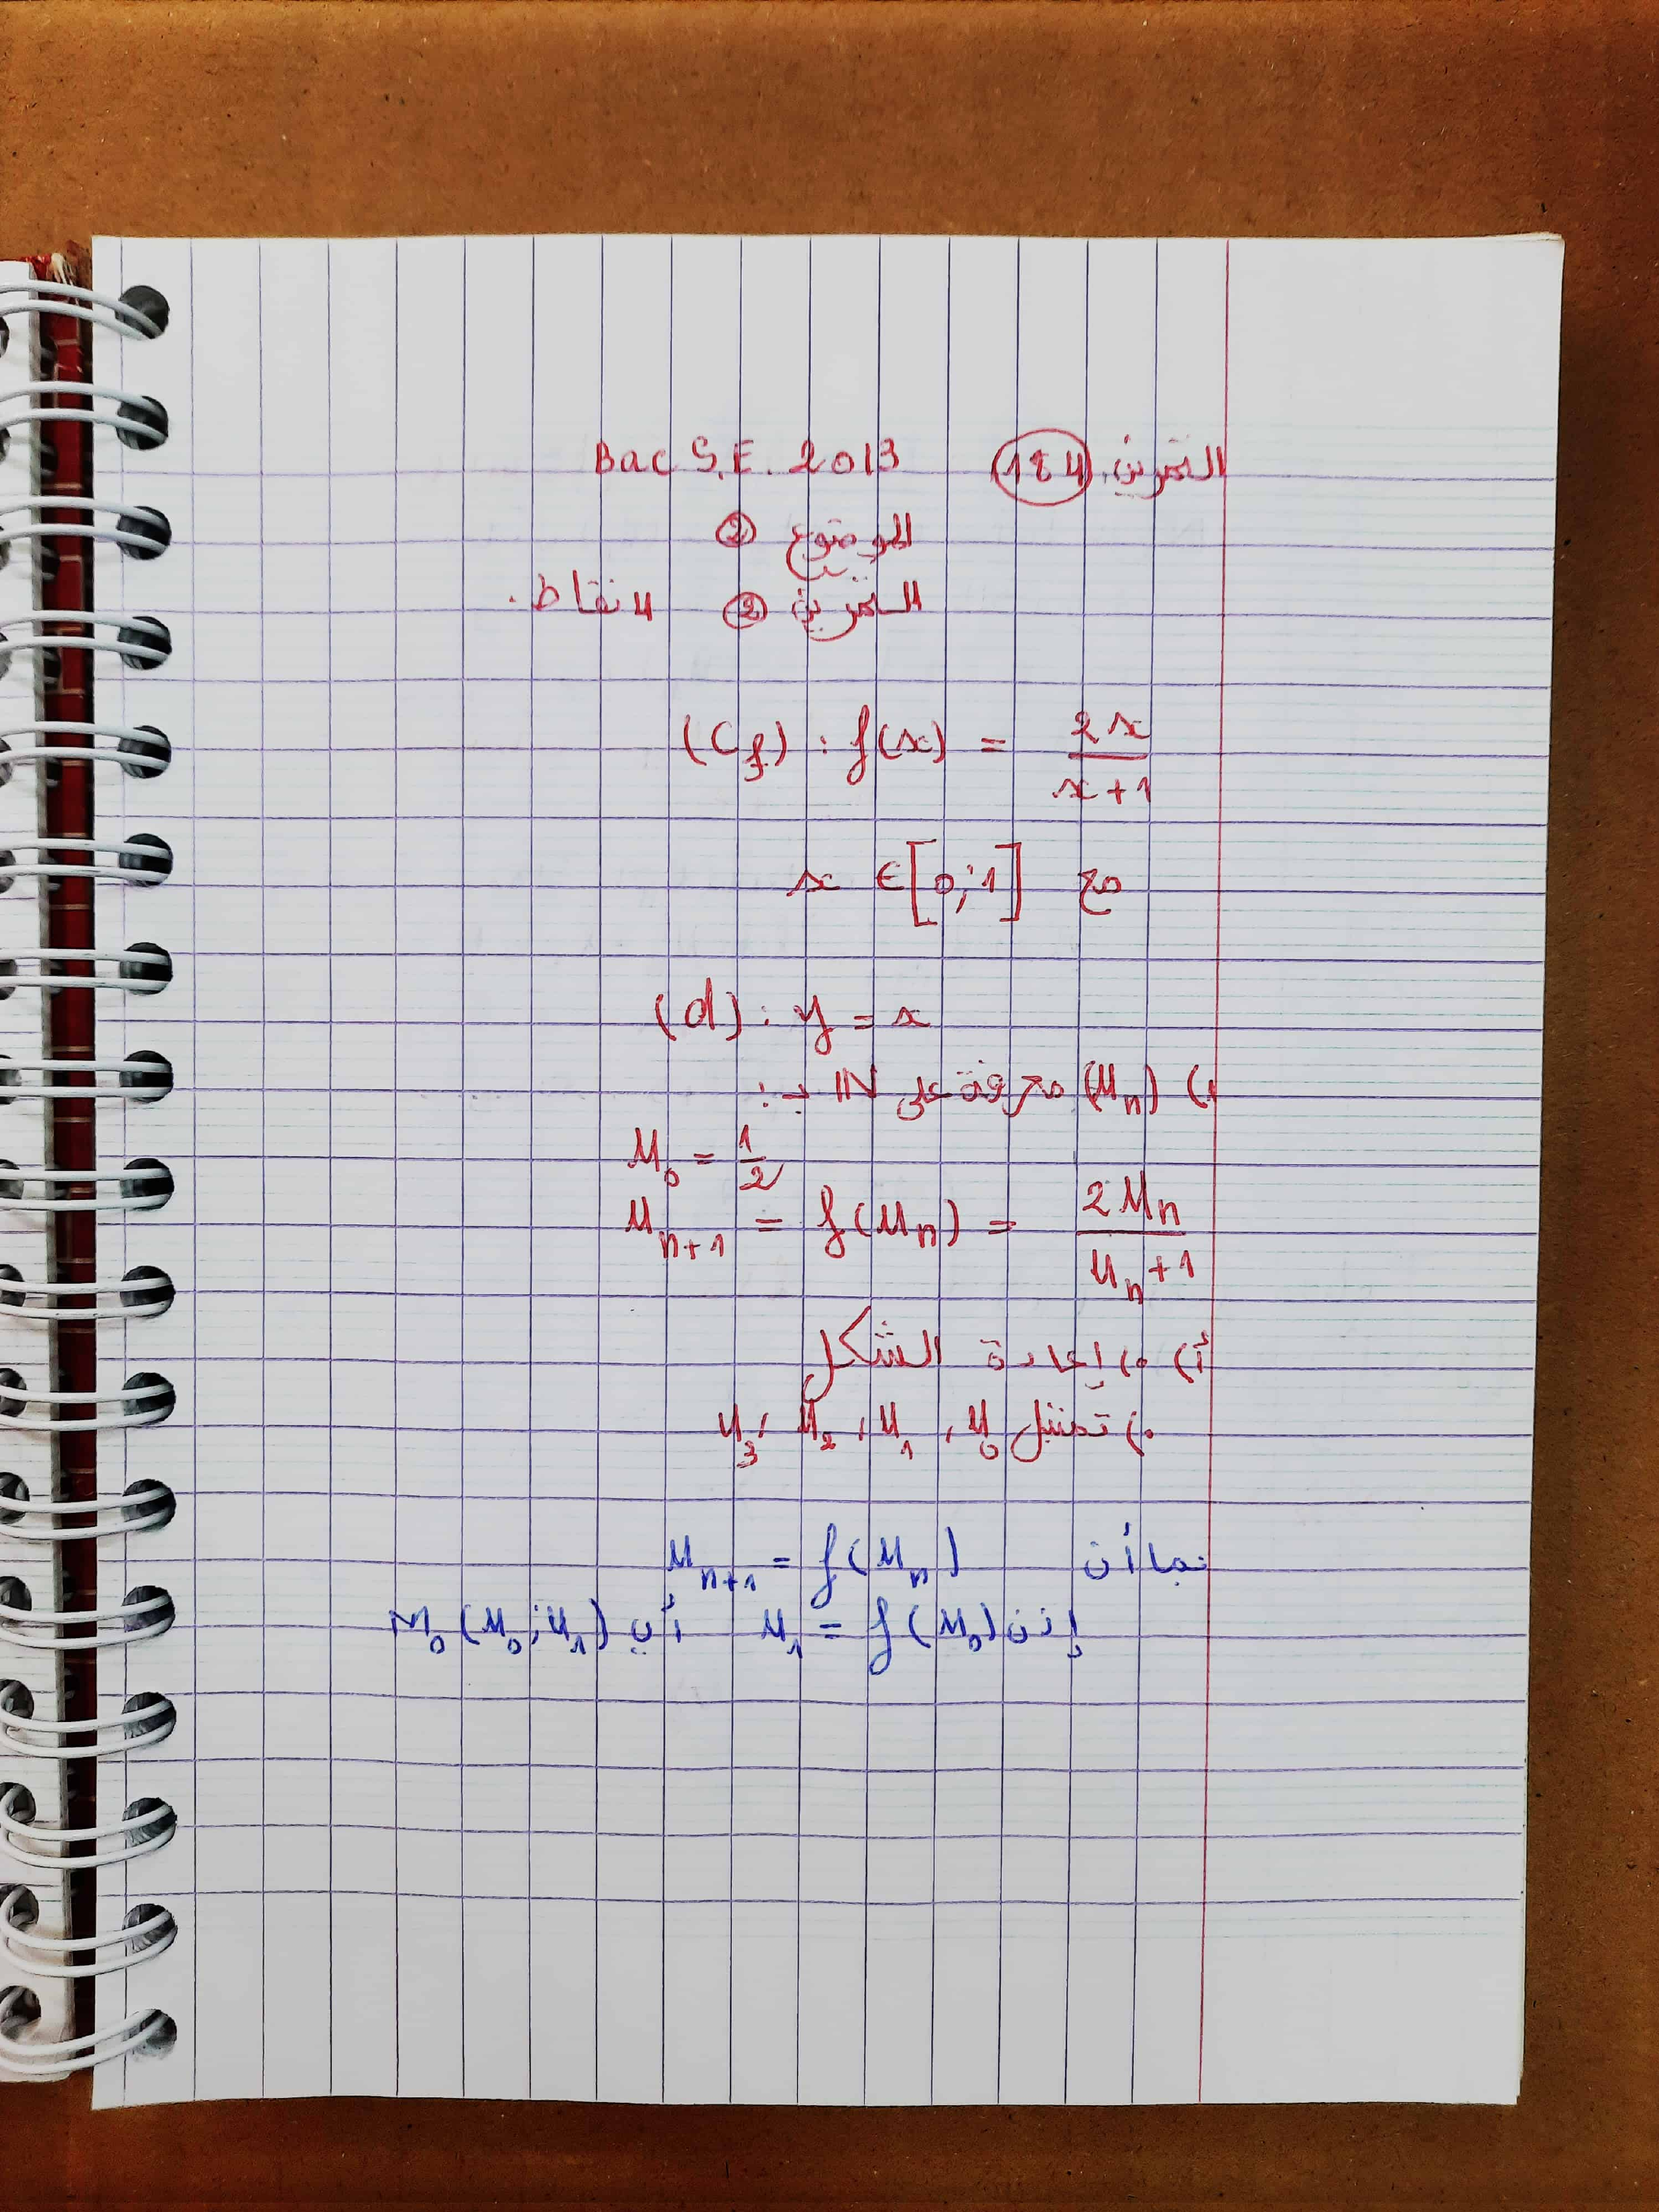 التمرين. 184 Bac S.E. 2013
الموضوع ②
التمرين ② 4 نقاط.
(Cf) : f(x) = 2x / x+1
مع x ∈ [0;1]
(d) : y = x
1) (Un) معرفة على IN بـ :
U0 = 1/2
Un+1 = f(Un) = 2Un / Un+1
أ) •) إعادة الشكل
•) تمثيل U0 ، U1 ، U2 ، U3
بما أن Un+1 = f(Un)
إذن U1 = f(U0) أي M0(U0;U1)